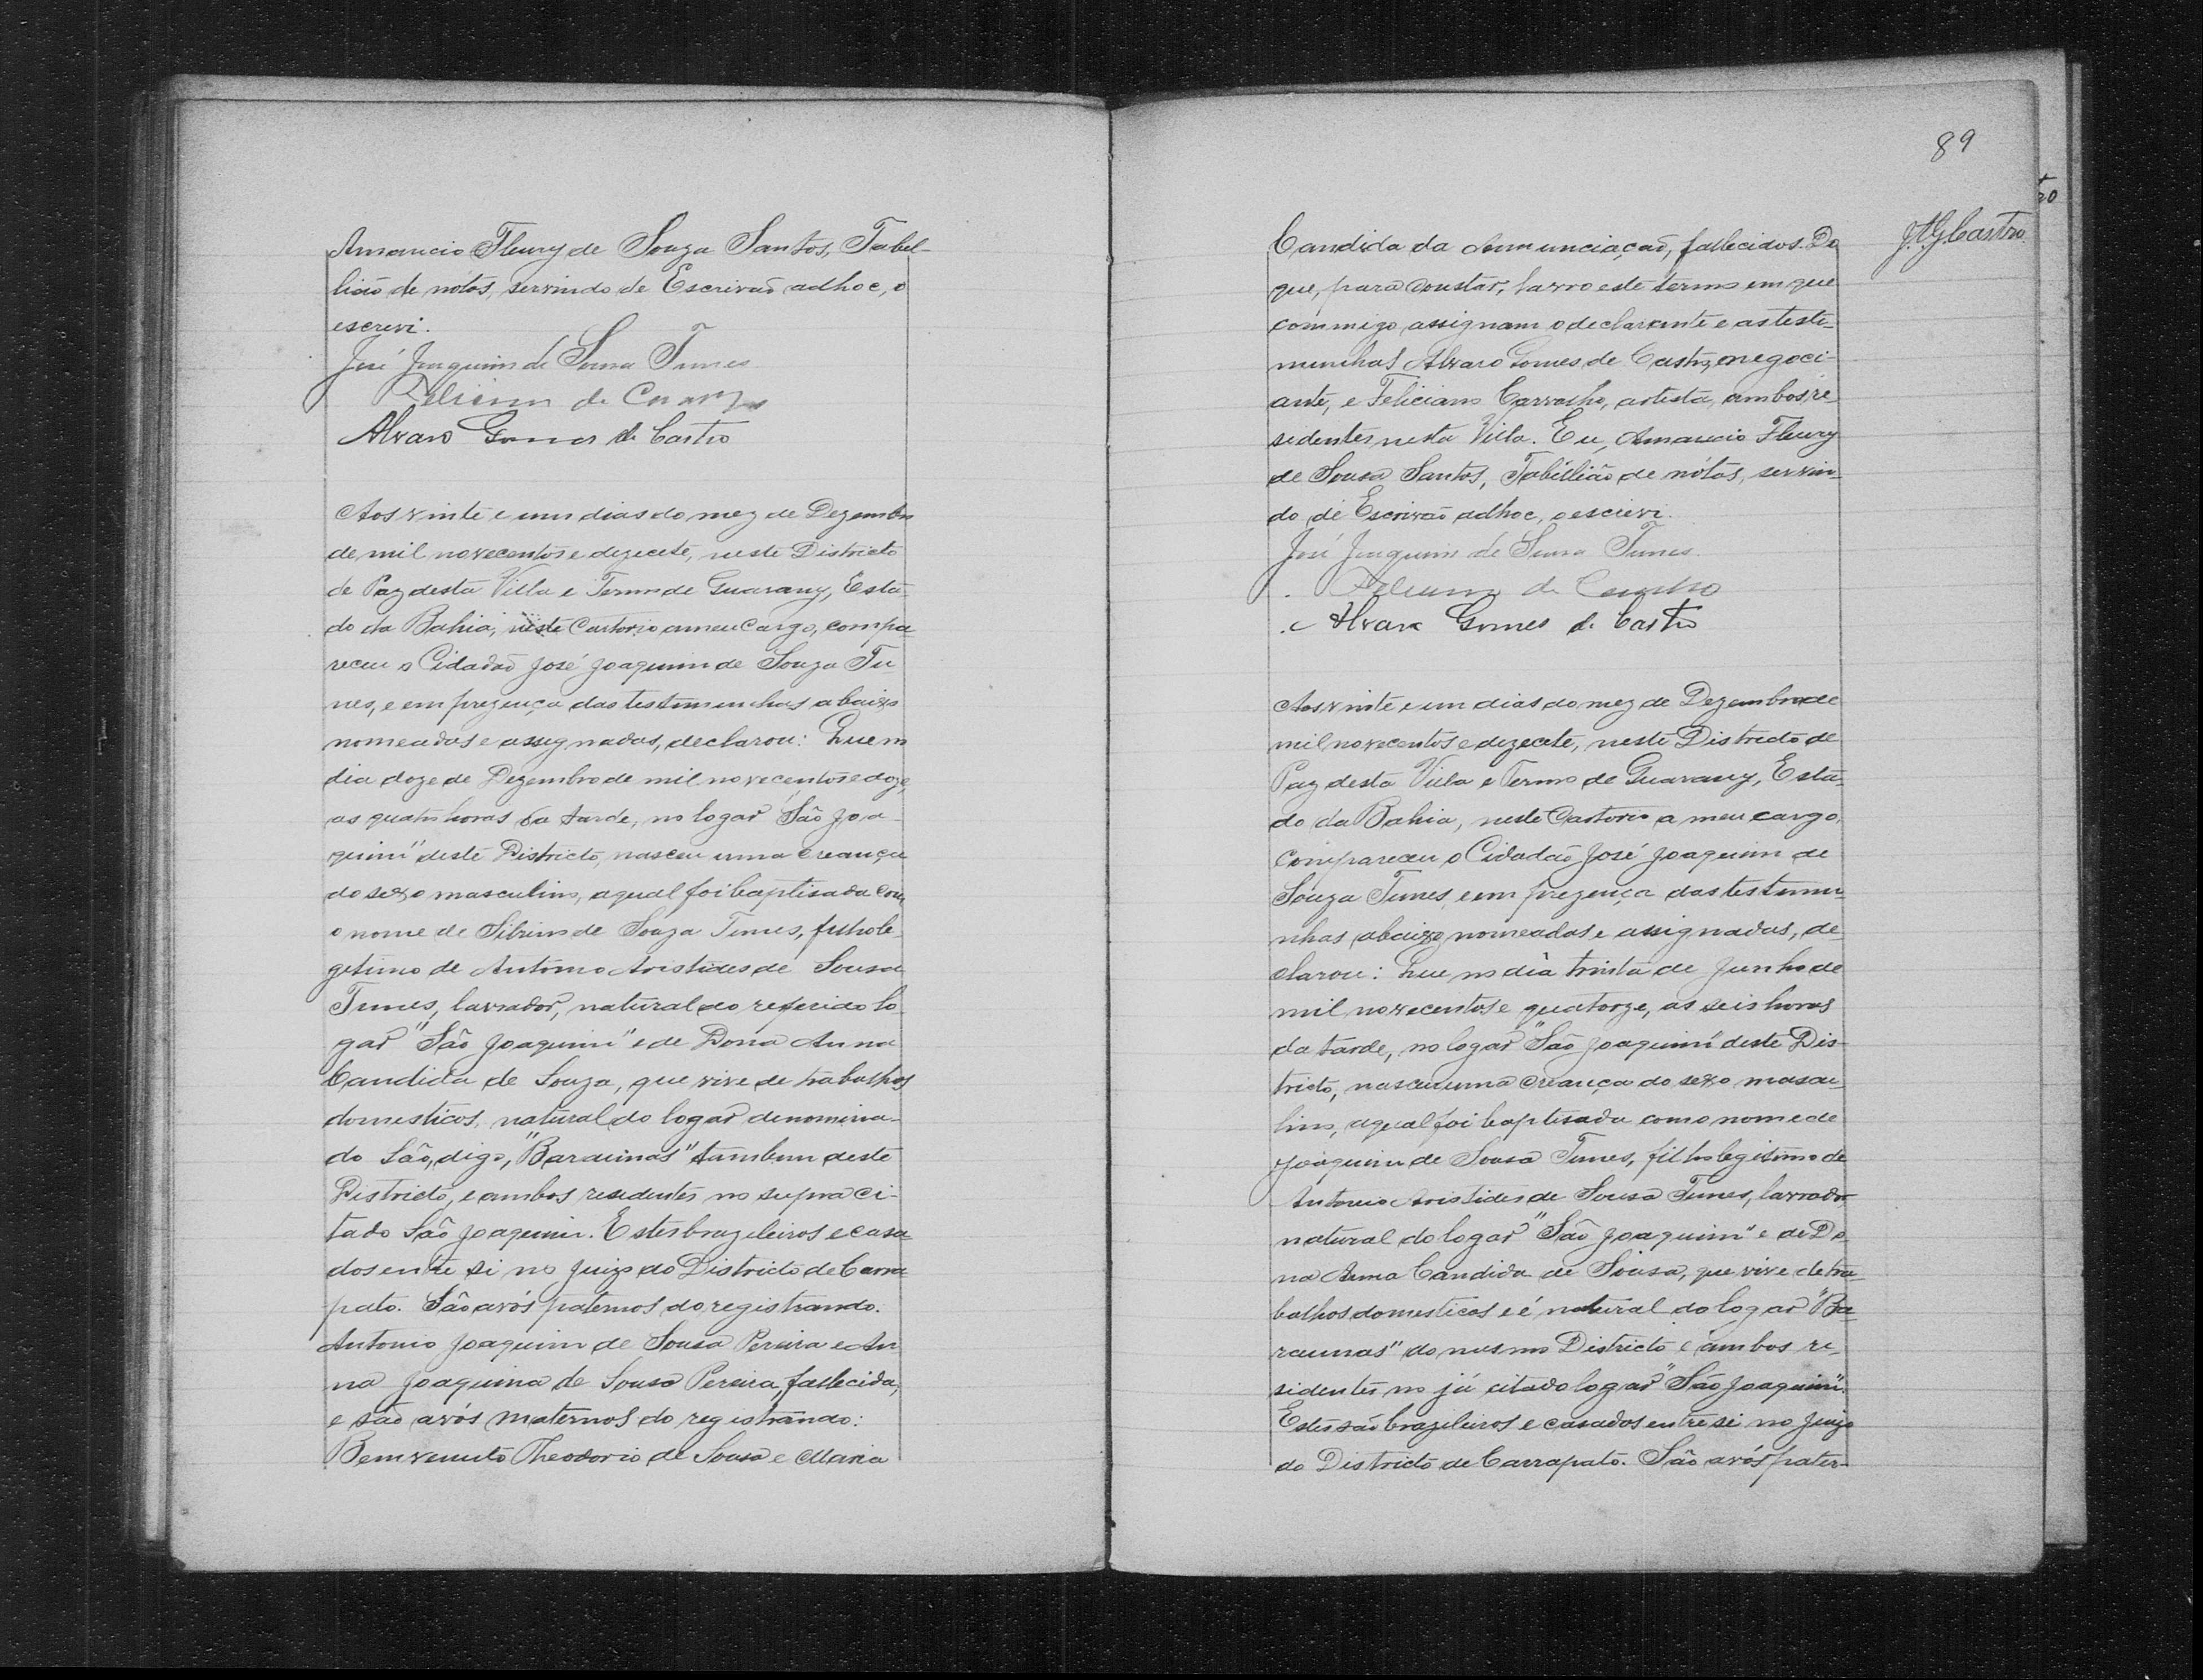 Amancio Fleury de Souza Santos, Tabel-
lião de nótas, servindo de Escrivaõ adhoc, o
escrevi.
José Joaquim de Sousa Tunes
de
Alvaro Gomes de Castro
Aos vinte e um dias do mez de Dezembro
de mil novecentos e dezecete, neste Districto
de Paz desta Villa e Termo de Guarany, Esta-
do da Bahia, neste Cartorio a meu cargo, compa-
receu o Cidadaõ José Joaquim de Souza Tu-
nes, e em prezença das testemunhas abaixo
nomeadas e assignadas, declarou: Que no
dia doze de Dezembro de mil novecentos e doze,
as quatro horas da tarde, no logar "São Joa-
quim" deste Districto, nasceu uma creança
do sexo masculino, a qual foi baptisada com
o nome de de Souza Tunes, filho le-
gitimo de Antonio Aristides de Sousa
Tunes, lavrador, natural do referido lo-
gar "São Joaquim" e de Dona Anna
Candida de Souza, que vive de trabalhos
domesticos, natural do logar denomina-
do São, digo, "Baraunas" tambem deste
Districto, e ambos residentes no supra ci-
tado São Joaquim. Estes brazileiros e casa-
dos entre si no Juizo do Districto de Carra-
pato. São avós paternos do registrando:
Antonio Joaquim de Sousa Pereira e An-
na Joaquina de Sousa Pereira, fallecida,
e são avós maternos do registrando:
Bemvenuto Theodorio de Sousa e Maria
89
J.A.G. Castro
Candida da Annunciaçaõ, fallecidos. Do
que, para constar, lavro este termo em que
commigo assignam o declarante e as teste-
munhas Alvaro Gomes de Castro, negoci-
ante, e Feliciano Carvalho, artista, ambos re-
sidentes nesta Villa. Eu, Amancio Fleury
de Sousa Santos, Tabellião de nótas, servin-
do de Escrivão adhoc, o escrevi.
José Joaquim de Sousa Tunes.
de
Alvaro Gomes de Castro
Aos vinte e um dias do mez de Dezembro de
mil novecentos e dezecete, neste Districto de
Paz desta Villa e Termo de Guarany, Esta-
do da Bahia, neste Cartorio a meu cargo,
compareceu o Cidadão José Joaquim de
Souza Tunes, e em prezença das testemu-
nhas abaixo nomeadas e assignadas, de-
clarou: Que no dia trinta de Junho de
mil novecentos e quatorze, as seis horas
da tarde, no logar "São Joaquim" deste Dis-
tricto, nasceu uma creança do sexo mascu-
lino, a qual foi baptisada com o nome de
Joaquim de Sousa Tunes, filho legitimo de
Antonio Aristides de Sousa Tunes, lavrador,
natural do logar "São Joaquim" e de Do-
na Anna Candida de Sousa, que vive de tra-
balhos domesticos e é natural do logar "Ba-
raunas" do mesmo Districto e ambos re-
sidentes no já citado logar "São Joaquim".
Estes são brazileiros e casados entre si no Juizo
do Districto de Carrapato. São avós pater-